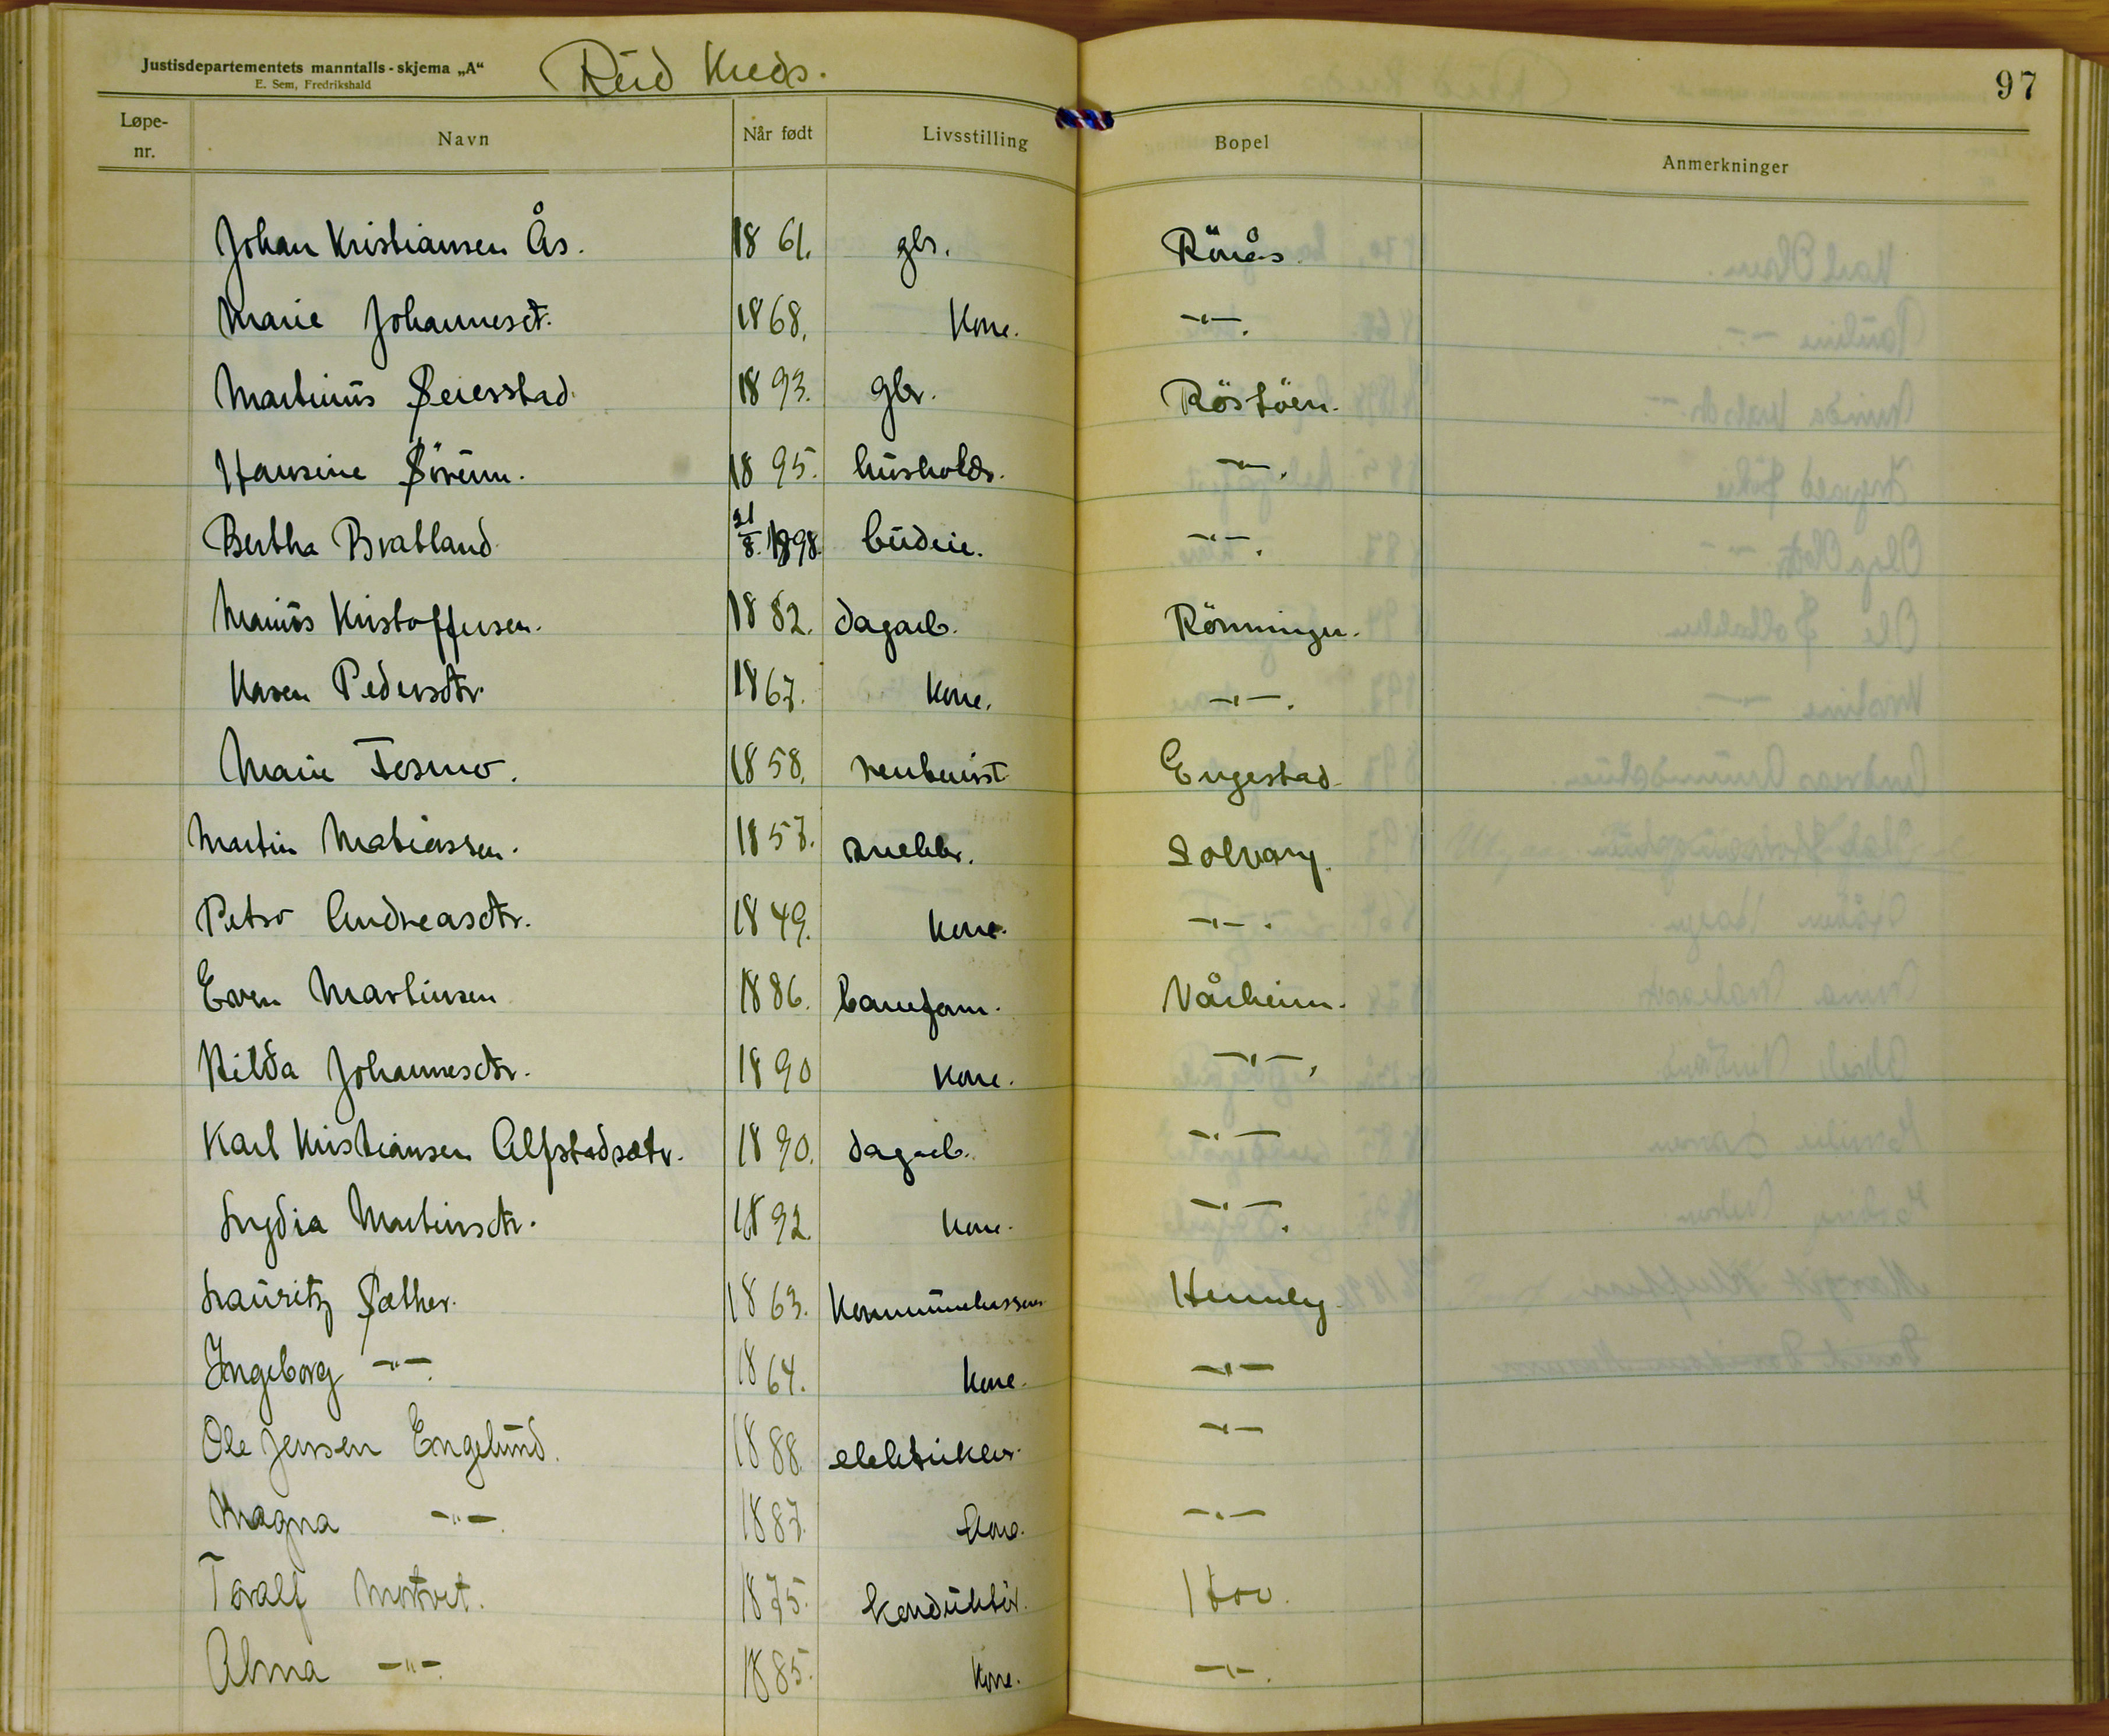 Justisdepartementets manntalls-skjema „A“
E. Sem, Fredrikshald
Rud Kreds.
97
Løpe-nr. Navn Når født Livsstilling Bopel Anmerkninger
Johan Kristiansen Ås. 1861. gbr. Rönås
Marie Johannesdt. 1868. Kone. —"—.
Martinus Seierstad 1893. gbr. Röstöen.
Hansine Sörum. 1895. husholdr. —"—.
Bertha Bratland 21/8. 1898. budeie. —"—.
Marius Kristoffersen. 1882. dagarb. Rönningen.
Karen Pedersdtr. 1867. Kone. —"—.
Marie Fosmo. 1858. rentenist Engestad
Martin Mathiassen. 1857. snekker. Solvang.
Petro Andreasdtr. 1849. Kone. —"—.
Even Martinsen 1886. baneform. Vårheim.
Hilda Johannesdtr. 1890 Kone. —"—.
Karl Kristiansen Alfstadsætr. 1890. dagarb. —"—
Lydia Martinsdtr. 1892. Kone. —"—.
Lauritz Sæther. 1863. Kommunekasserer Heimly
Ingeborg —"—. 1864. Kone. —"—
Ole Jensen Engelund. 1888. elektriker. —"—
Magna —"—. 1887. Kone. —"—
Toralf Mortvet. 1875. konduktör.
Alma —"—. 1885. Kone. —"—.